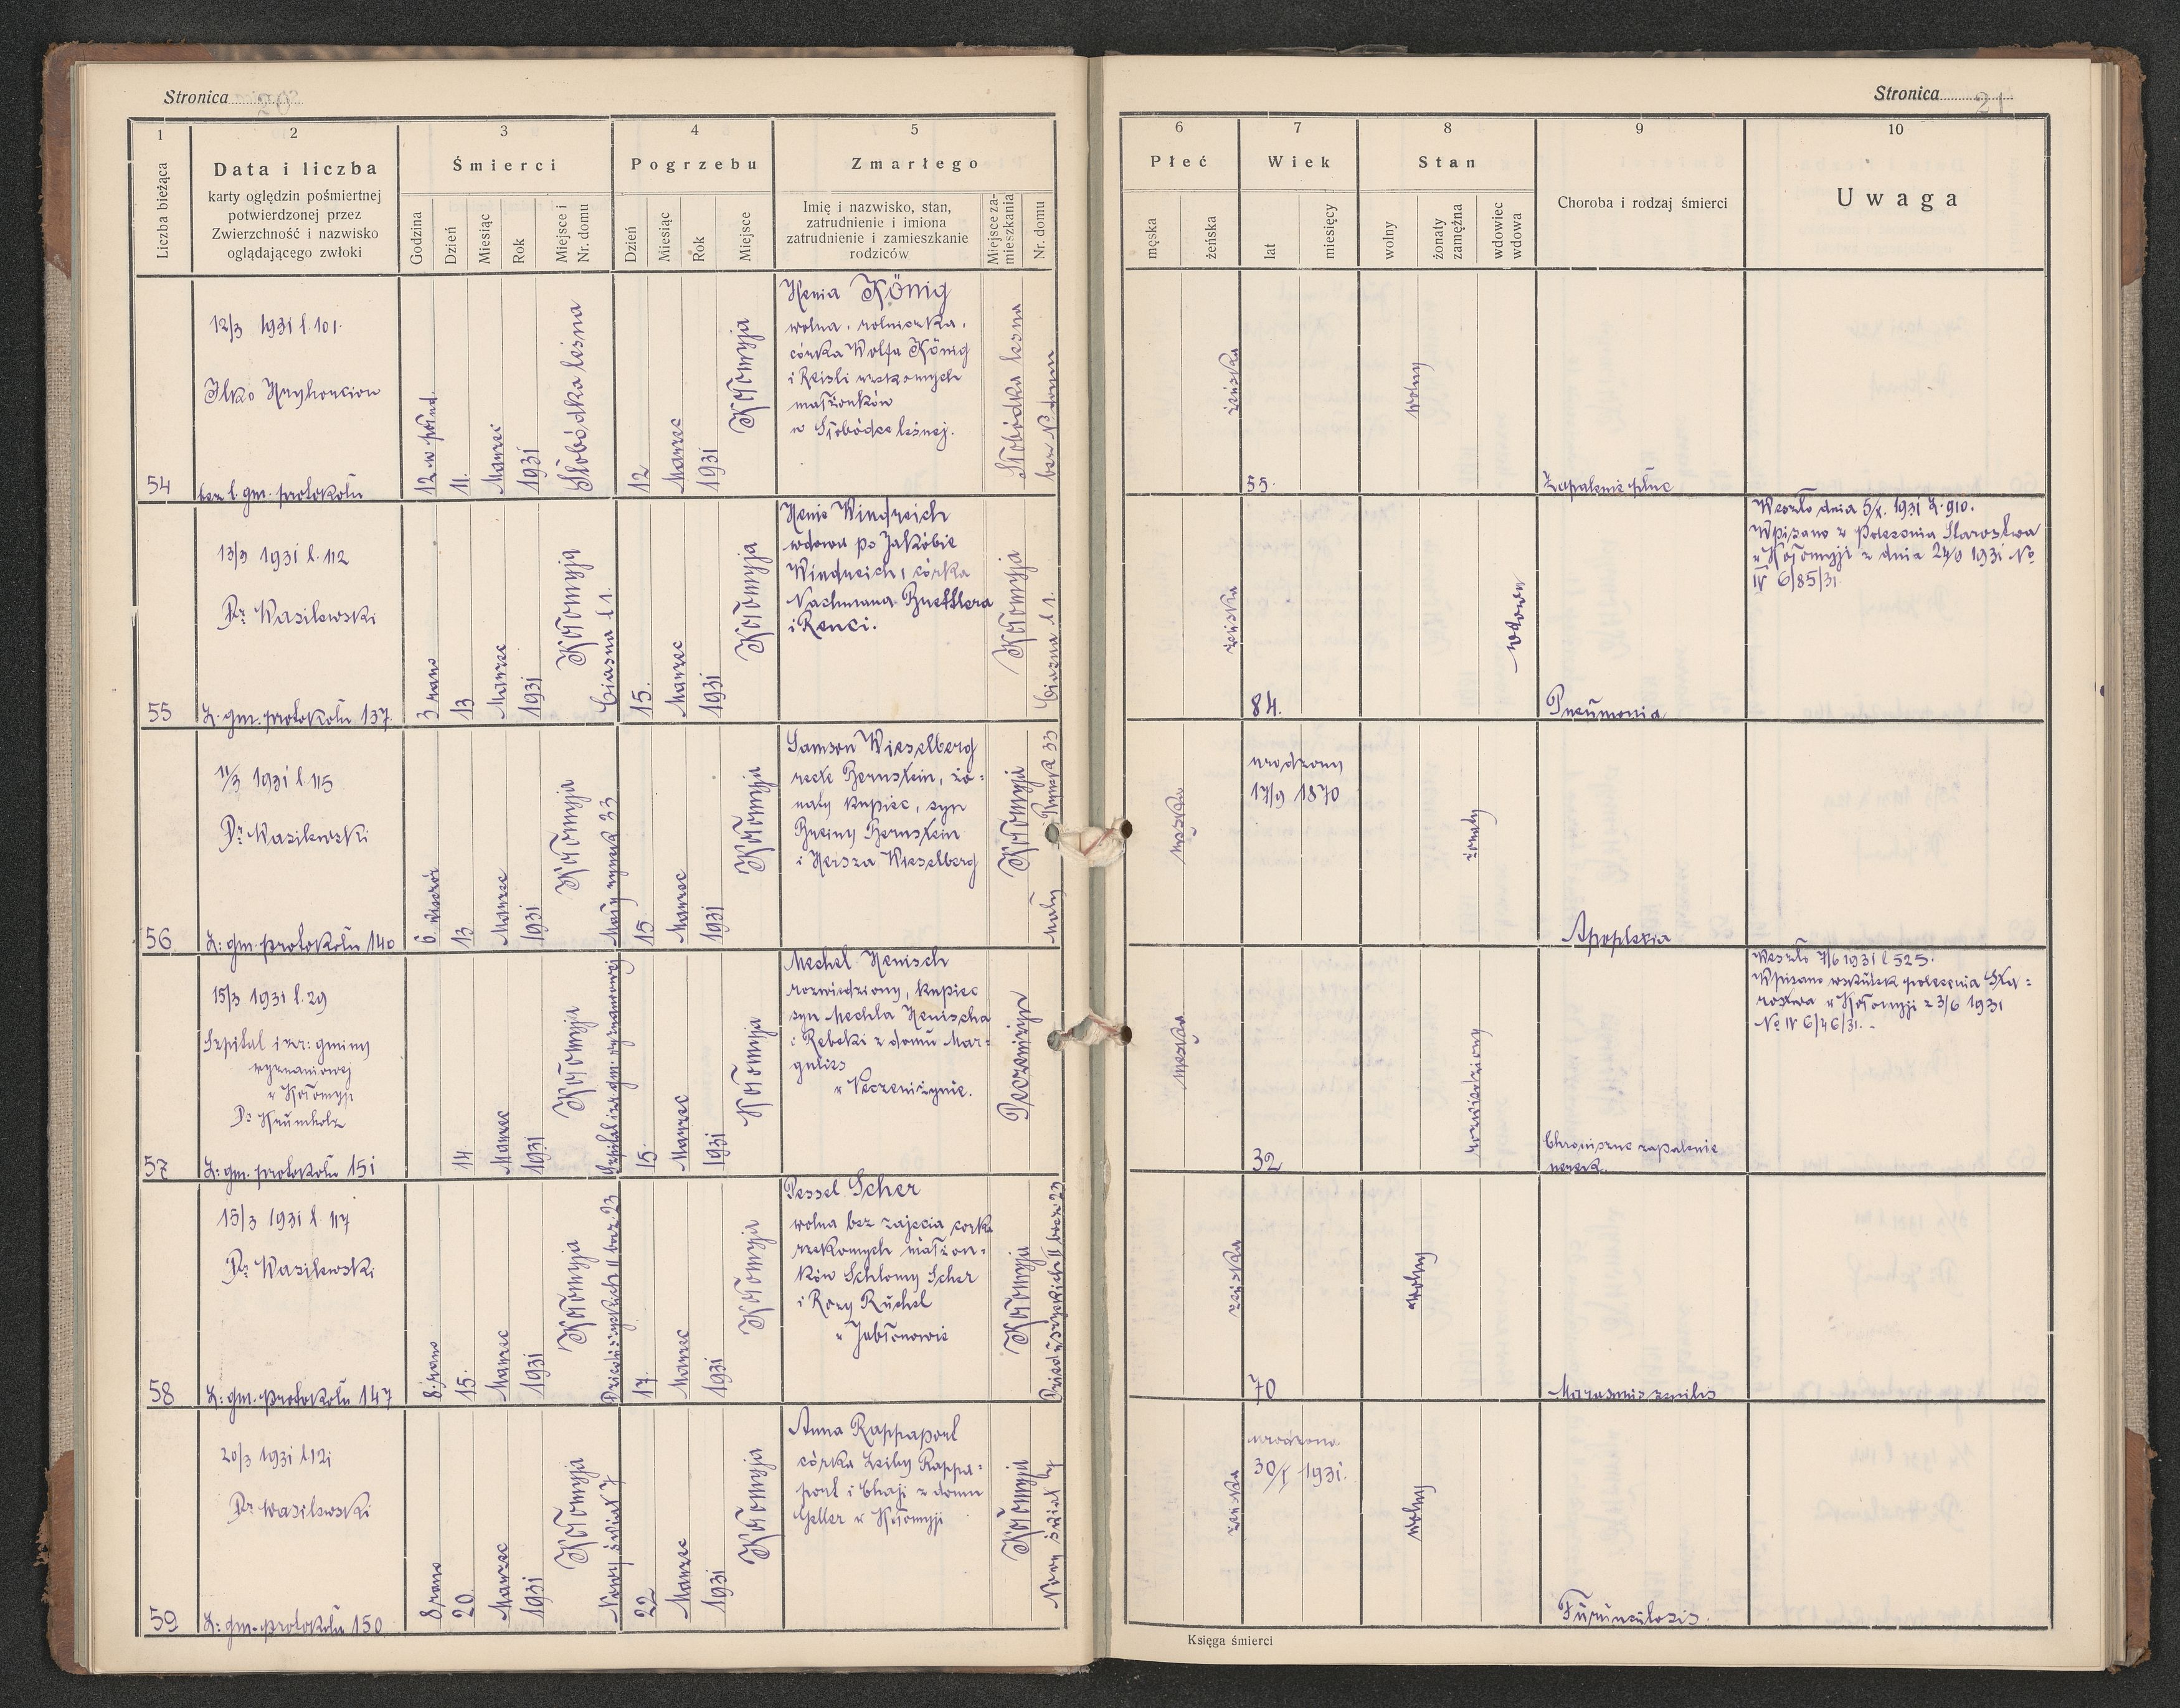 Stronica 20
1
2
3
4
5
Liczba bieżąca
Data i liczba
karty oględzin pośmiertnej
potwierdzonej przez
Zwierzchność i nazwisko
oglądającego zwłoki
Śmierci
Godzina
Dzień
Miesiąc
Rok
Miejsce i
Nr. domu
Pogrzebu
Dzień
Miesiąc
Rok
Miejsce
Zmarłego
Imię i nazwisko, stan,
zatrudnienie i imiona
zatrudnienie i zamieszkanie
rodziców
Miejsce za-
mieszkania
Nr. domu
Stronica 21
6
7
8
9
10
Płeć
męska
żeńska
Wiek
lat
miesięcy
Stan
wolny
żonaty
zamężna
wdowiec
wdowa
Choroba i rodzaj śmierci
Uwaga
54
12/3 1931 l. 101.
Ilko
bez l. gm. protokołu
12 w połud.
11.
Marzec
1931
Słobódka leśna
12
Marzec
1931
Kołomyja
Henia König
wolna, rolniczka,
córka Wolfa König
i Reisli rzekomych
małżonków
w Słobódce leśnej.
Słobódka leśna
bez N domu
żeńska
55.
wolny
Zapalenie płuc
55
13/3 1931 l. 112
Dr Wasilewski
L. gm. protokołu 137.
3 rano
13
Marzec
1931
Kołomyja
Ciasna l 1.
15.
Marzec
1931
Kołomyja
Henie Windreich
wdowa po Jakóbie
Windreich, córka
Nachmana
i Renci.
Kołomyja
Ciasna l 1.
żeńska
84.
wdowa
Pneumonia
Weszło dnia 5/X. 1931 L. 910.
Wpisano z polecenia Starostwa
w Kołomyji z dnia 24/9 1931 No
IV 6/85/31
56
11/3 1931 l. 115
Dr Wasilewski
L: gm. protokołu 140
6 wieczór
13
Marzec
1931
Kołomyja
Mały rynek 33
15
Marzec
1931
Kołomyja
Samson Wieselberg
recte Bernstein, żo-
naty kupiec, syn
Breiny Bernstein
i Hersza Wieselberg
Kołomyja
Mały Rynek 33
męska
urodzony
17/9 1870
żonaty
Apoplexia
57
15/3 1931 l. 29
Szpital izr: gminy
wyznaniowej
w Kołomyji
Dr Krumholz
L: gm. protokołu 151
14
Marzec
1931
Kołomyja
Szpital izr gm. wyznaniowej
15.
Marzec
1931
Kołomyja
Mechel Henisch
rozwiedziony, kupiec
syn Mechla Henischa
i Rebeki z domu Mar-
gulies
w Peczeniżynie.
Peczeniżyn
męska
32
rozwiedziony
Chroniczne zapalenie
nerek.
Weszło 7/6 1931 l 525.
Wpisano wskutek polecenia Sta-
rostwa w Kołomyji z 3/6 1931
No IV 6/46/31.
58
15/3 1931 l. 117
Dr Wasilewski
L: gm. protokołu 147
8 rano
15.
Marzec
1931
Kołomyja
Dzieduszyckich II bocz 23
17.
Marzec
1931
Kołomyja
Pessel Scher
wolna bez zajęcia córka
rzekomych małżon-
ków Schlomy Scher
i Rozy Ruchel
w Jabłonowie
Kołomyja
Dzieduszyckich II bocz 23
żeńska
70
wolny
Marasmus senilis
59
20/3 1931 l 121
Dr Wasilewski
L: gm. protokołu 150
8 rano
20.
Marzec
1931
Kołomyja
Nowy świat 7
22
Marzec
1931
Kołomyja
Anna Rappaport
córka Leiby Rappa-
port i Chaji z domu
Geller w Kołomyji
Kołomyja
Nowy świat
żeńska
urodzona
30/I 1931.
wolny
Furunculosis.
Księga śmierci